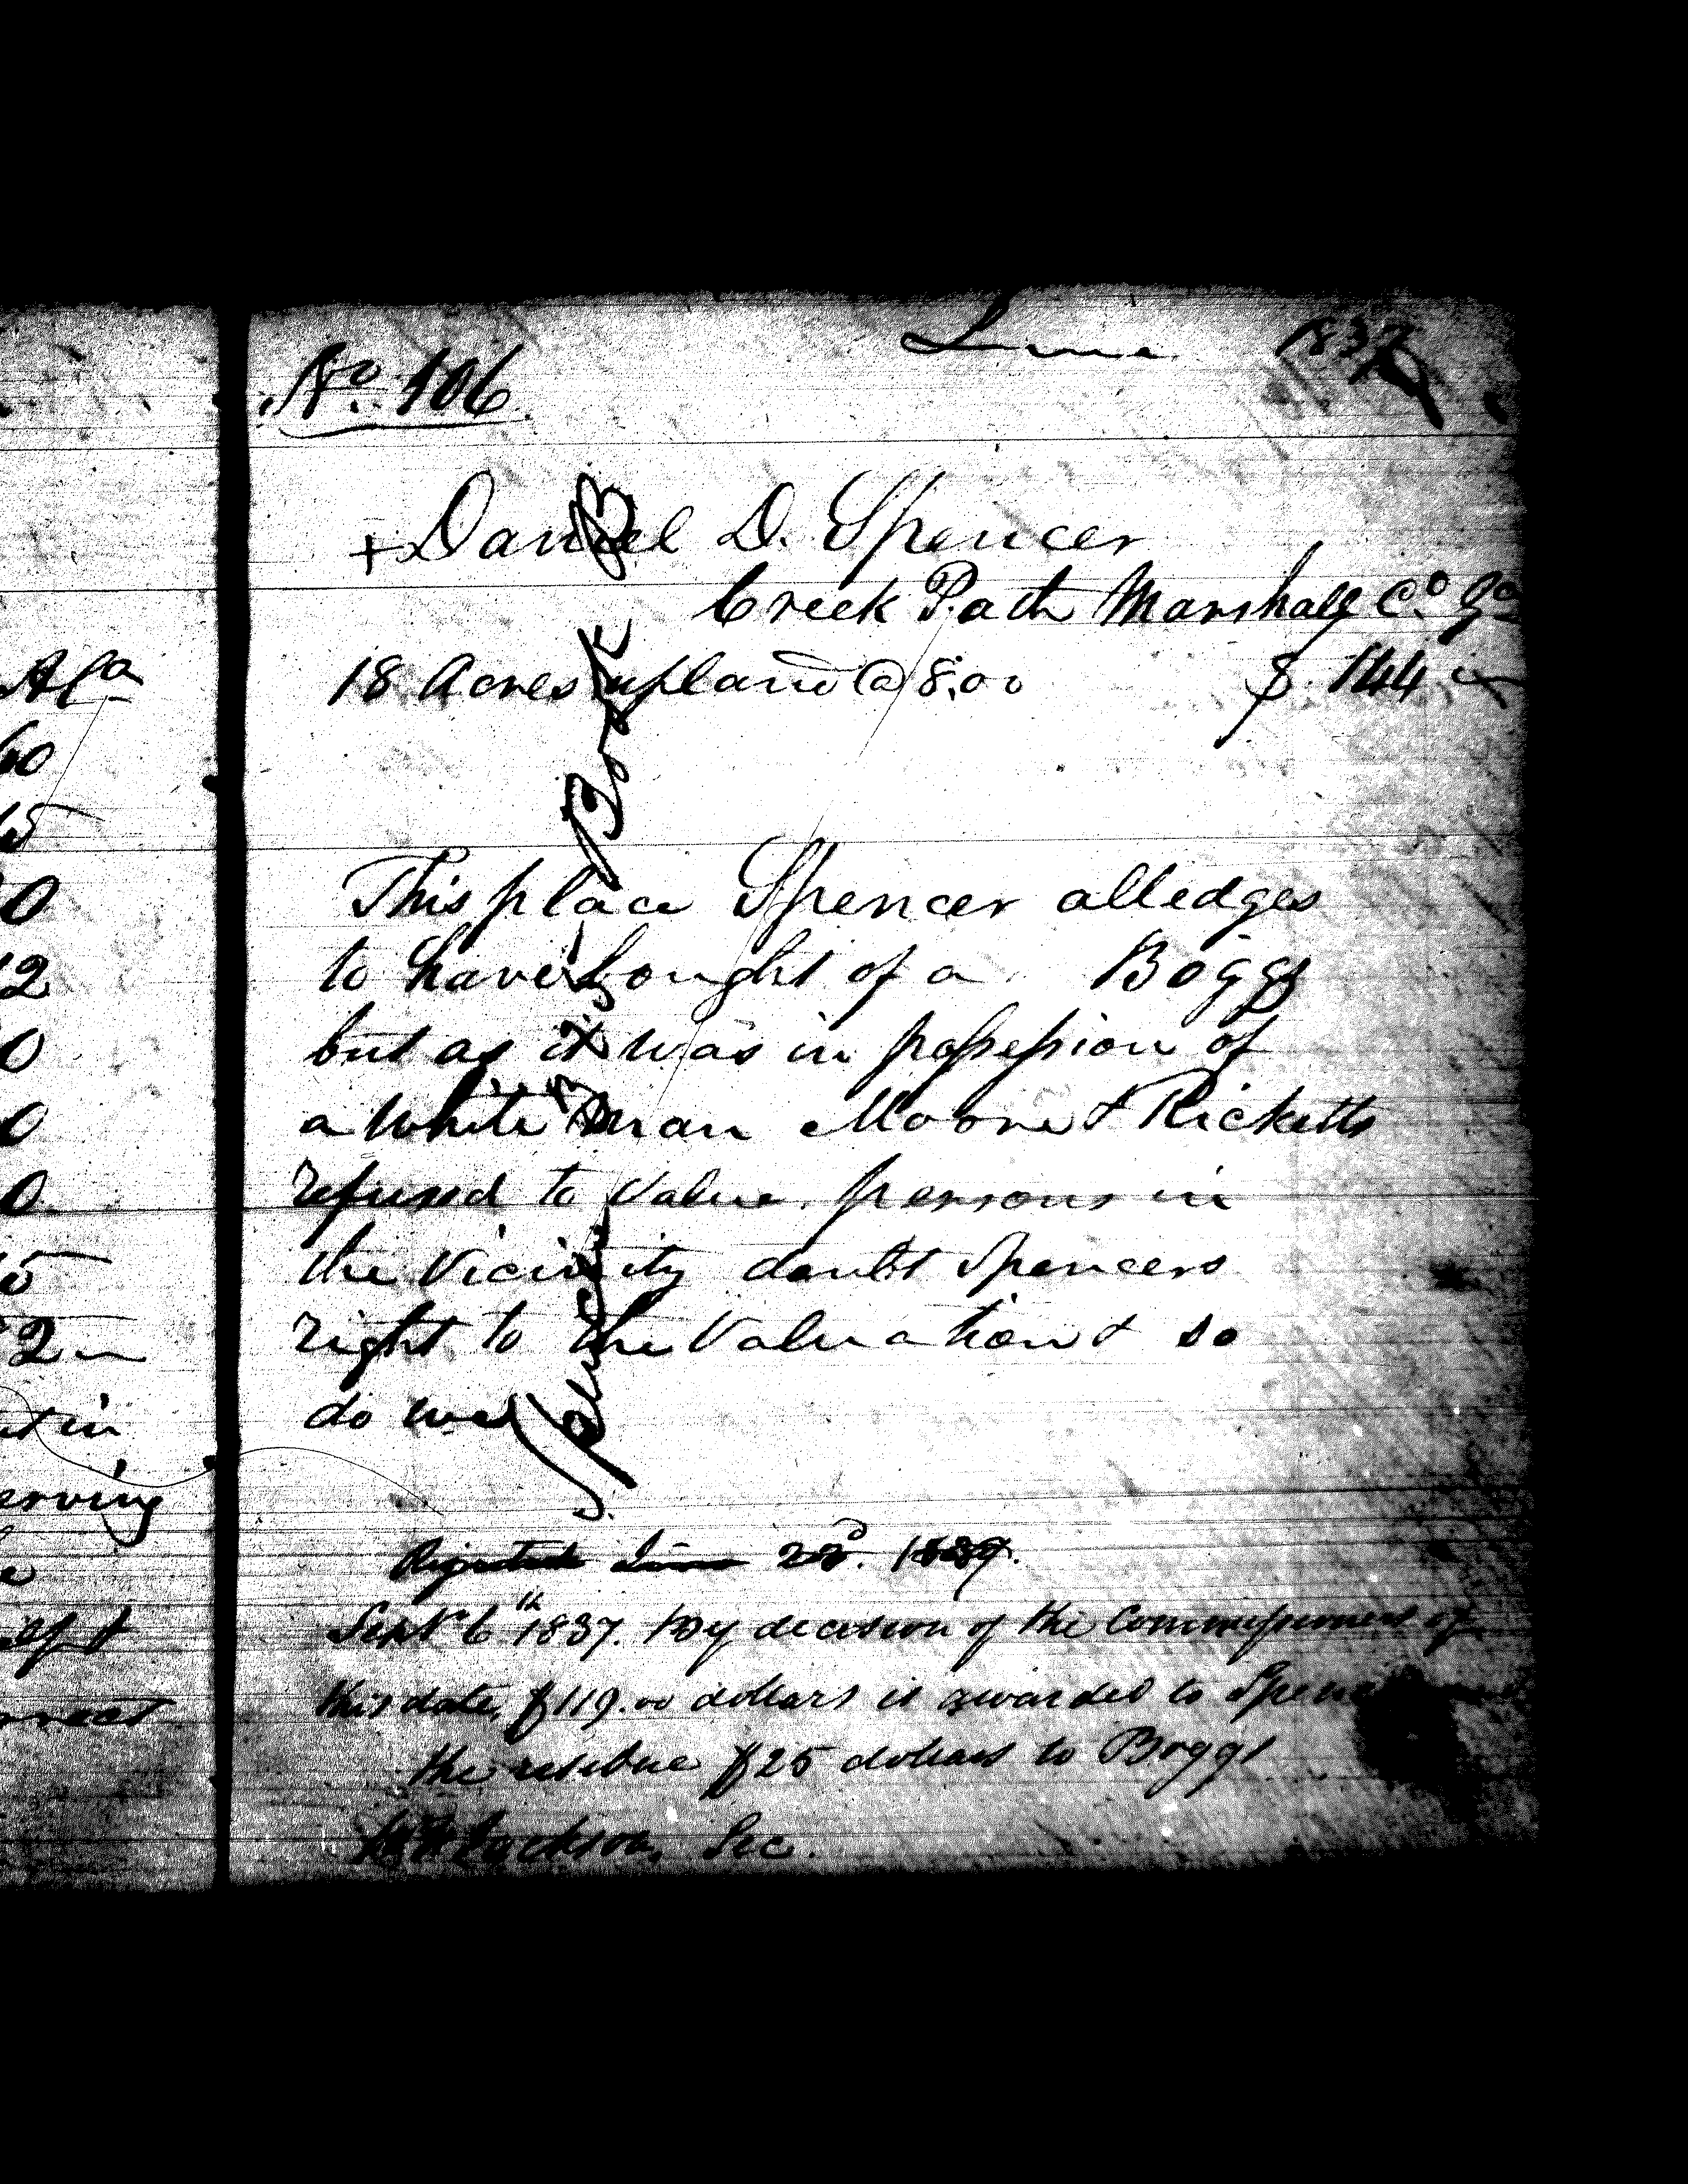 June 1837
No. 106.
+ Daniel D. Spencer
Creek Path Marshall Co. Ga
18 Acres upland @ 8.00 $ 144
This place Spencer alledges
to have bought of a Boggs
but as it was in possession of
a white man Moore & Ricketts
refused to value. persons in
the Vicinity doubt Spencers
right to the Valuation & so
do we
Rejected June 22d. 1837.
Sept. 6th 1837. By decision of the Commissioners of
this date, $119.00 dollars is awarded to Spencer
the residue $25 dollars to Boggs
Jackson, Sec.
Ala
60
15
0
12
0
0
0
5
2
in
erving